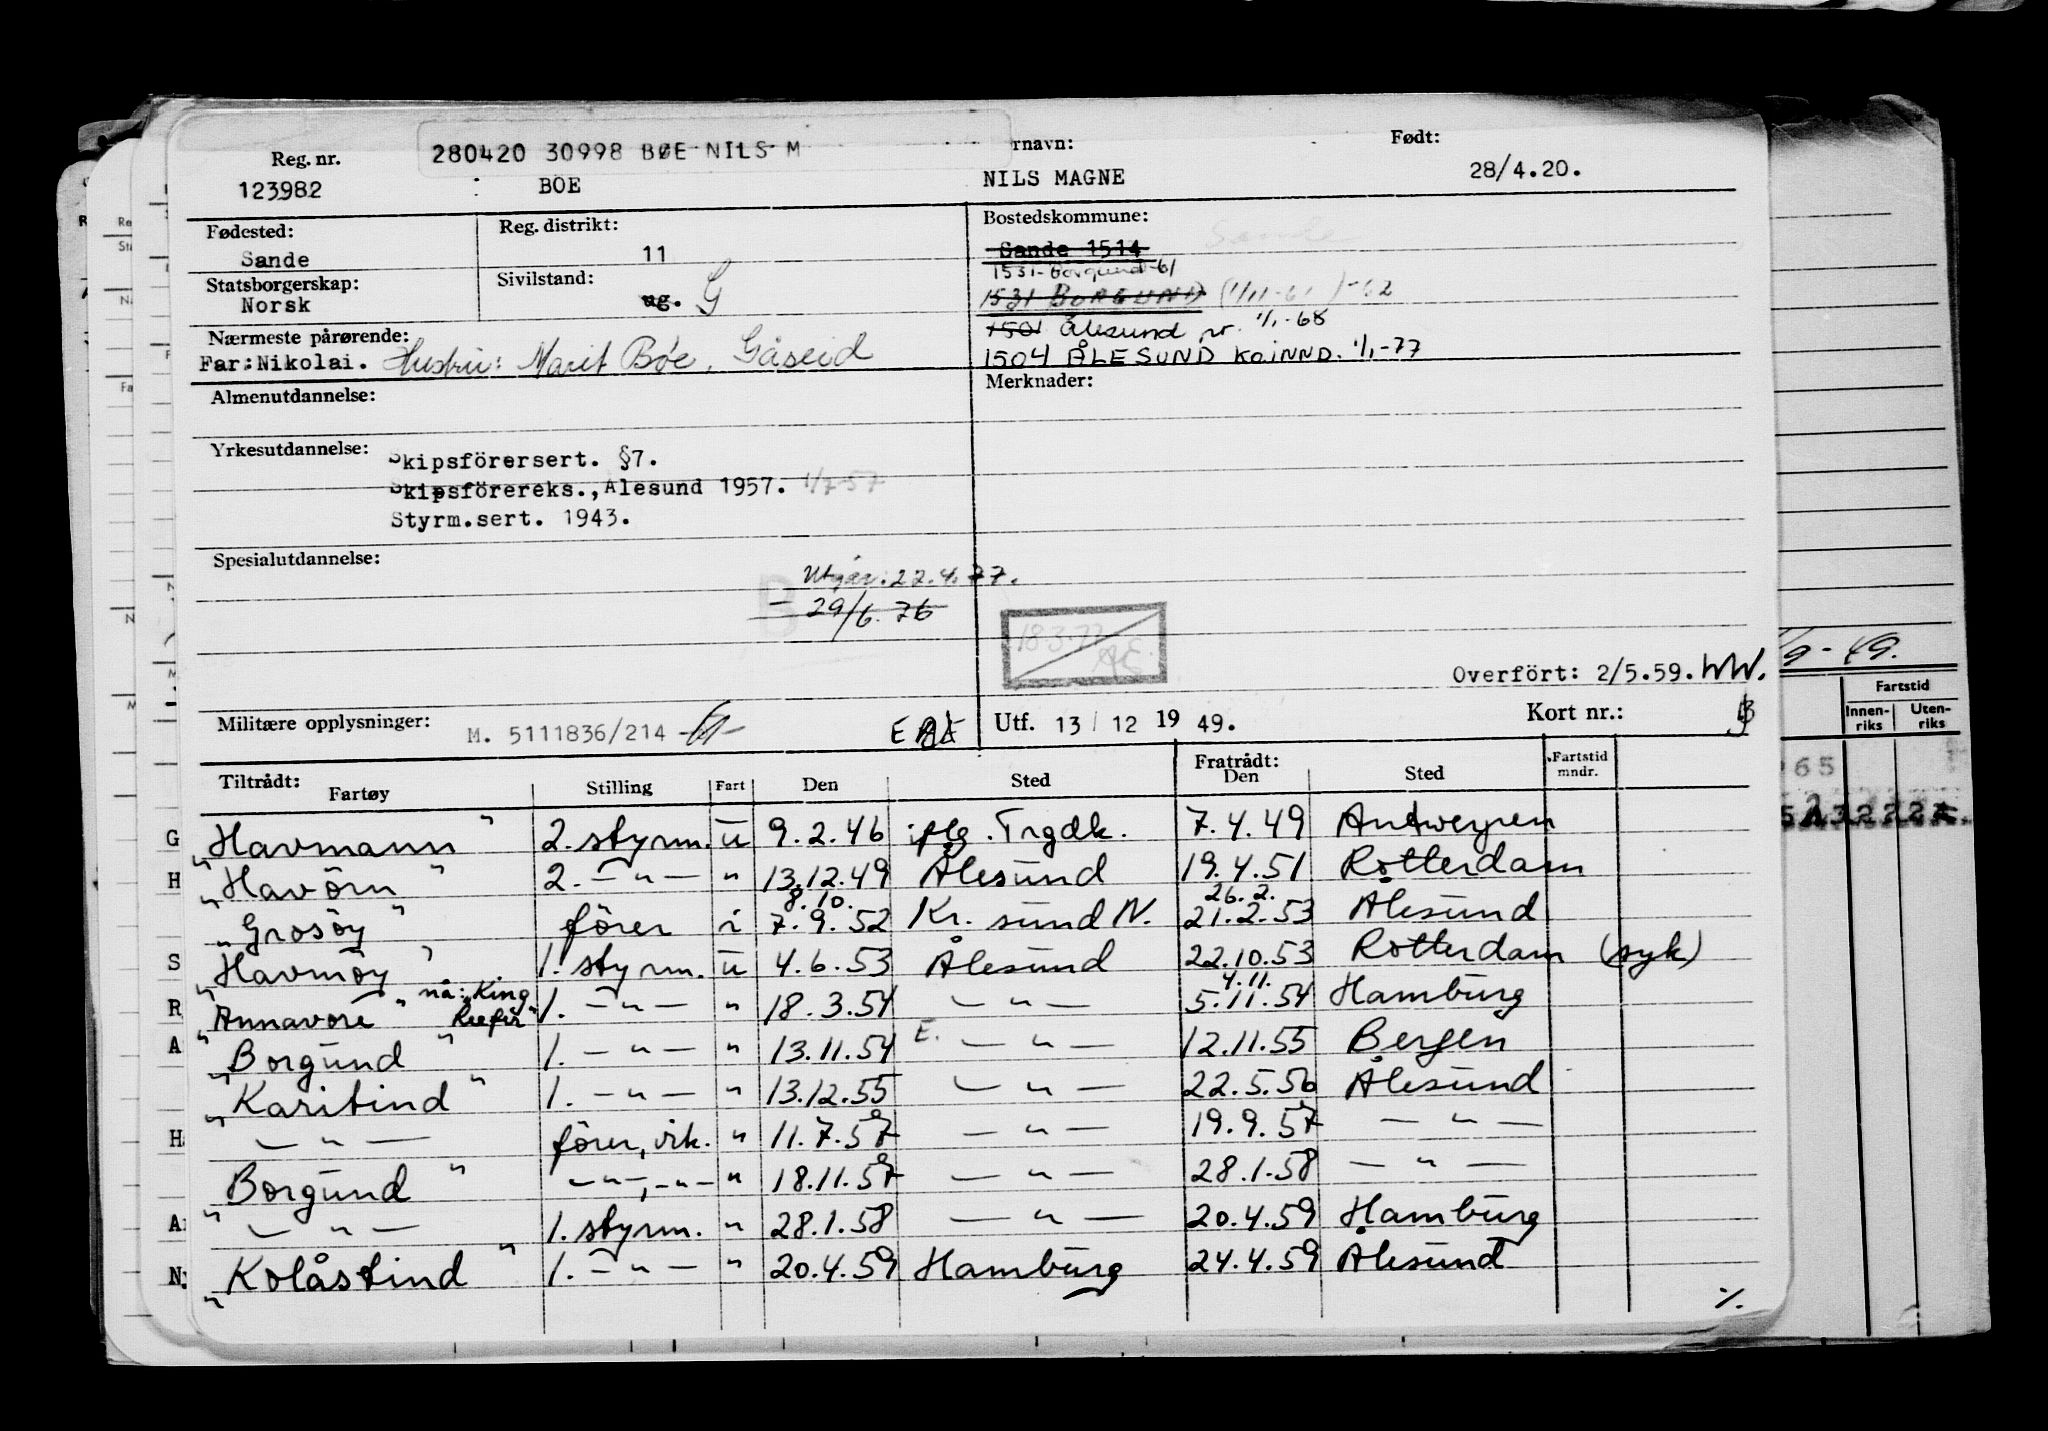 Reg. nr. 280420 30998 BØE NILS M rnavn: Født:
123982 : BÖE NILS MAGNE 28/4.20.
Fødested: Reg. distrikt: Bostedskommune:
Sande 11 Sande 1514 Sande
1531-Borgund-61
Statsborgerskap: Sivilstand: 1531 BORGUND (1/11-61)-62
Norsk ug. G
1501 Ålesund nr. 1/1-68
Nærmeste pårørende:
Far:Nikolai. Hustru: Marit Bøe, Gåseid 1504 ÅLESUND KOMND. 1/1-77
Almenutdannelse: Merknader:
Yrkesutdannelse: Skipsförersert. §7.
Skipsförereks., Ålesund 1957. 1/7-57
Styrm.sert. 1943.
Spesialutdannelse:
Utgår. 22.4.77.
B - 29/6.76
18.3.77 AE
Overfört: 2/5.59. WW.
Militære opplysninger: M. 5111836/214 Utf. 13/12 1949. Kort nr.:
Tiltrådt: Fartøy Stilling Fart Den Sted Fratrådt: Den Sted Fartstid mndr.
G "Havmann" 2. styrm. u 9.2.46 iflg. Trgdk. 7.4.49 Antwerpen
H "Havörn" 2. —"— " 13.12.49 Ålesund 19.4.51 Rotterdam
8.10. 26.2.
"Grosöy" förer i 7.9.52 Kr. sund N. 21.2.53 Ålesund
S "Havmöy" 1. styrm. u 4.6.53 Ålesund 22.10.53 Rotterdam (syk)
nå: "King 4.11.
R "Annavore" Reefer" 1. —"— " 18.3.54 —"— 5.11.54 Hamburg
A "Borgund" 1. —"— " 13.11.54 E. —"— 12.11.55 Bergen
"Karitind" 1. —"— " 13.12.55 —"— 22.5.56 Ålesund
H —"— förer, vik. " 11.7.57 —"— 19.9.57 —"—
"Borgund" —"—, —"— " 18.11.57 —"— 28.1.58 —"—
A —"— 1. styrm. " 28.1.58 —"— 20.4.59 Hamburg
N "Kolåstind" 1. —"— " 20.4.59 Hamburg 24.4.59 Ålesund
%.
/9-49.
Fartstid
Innen- Uten-
riks riks
65